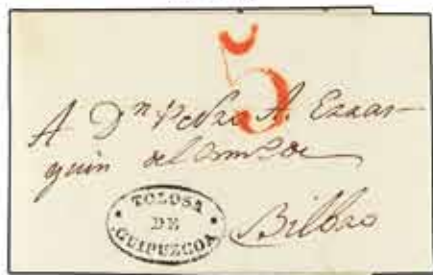 5
A Dn Pedro A. Errar-
quin del Comºde
TOLOSA
DE
GUIPUZCOA
Bilbao